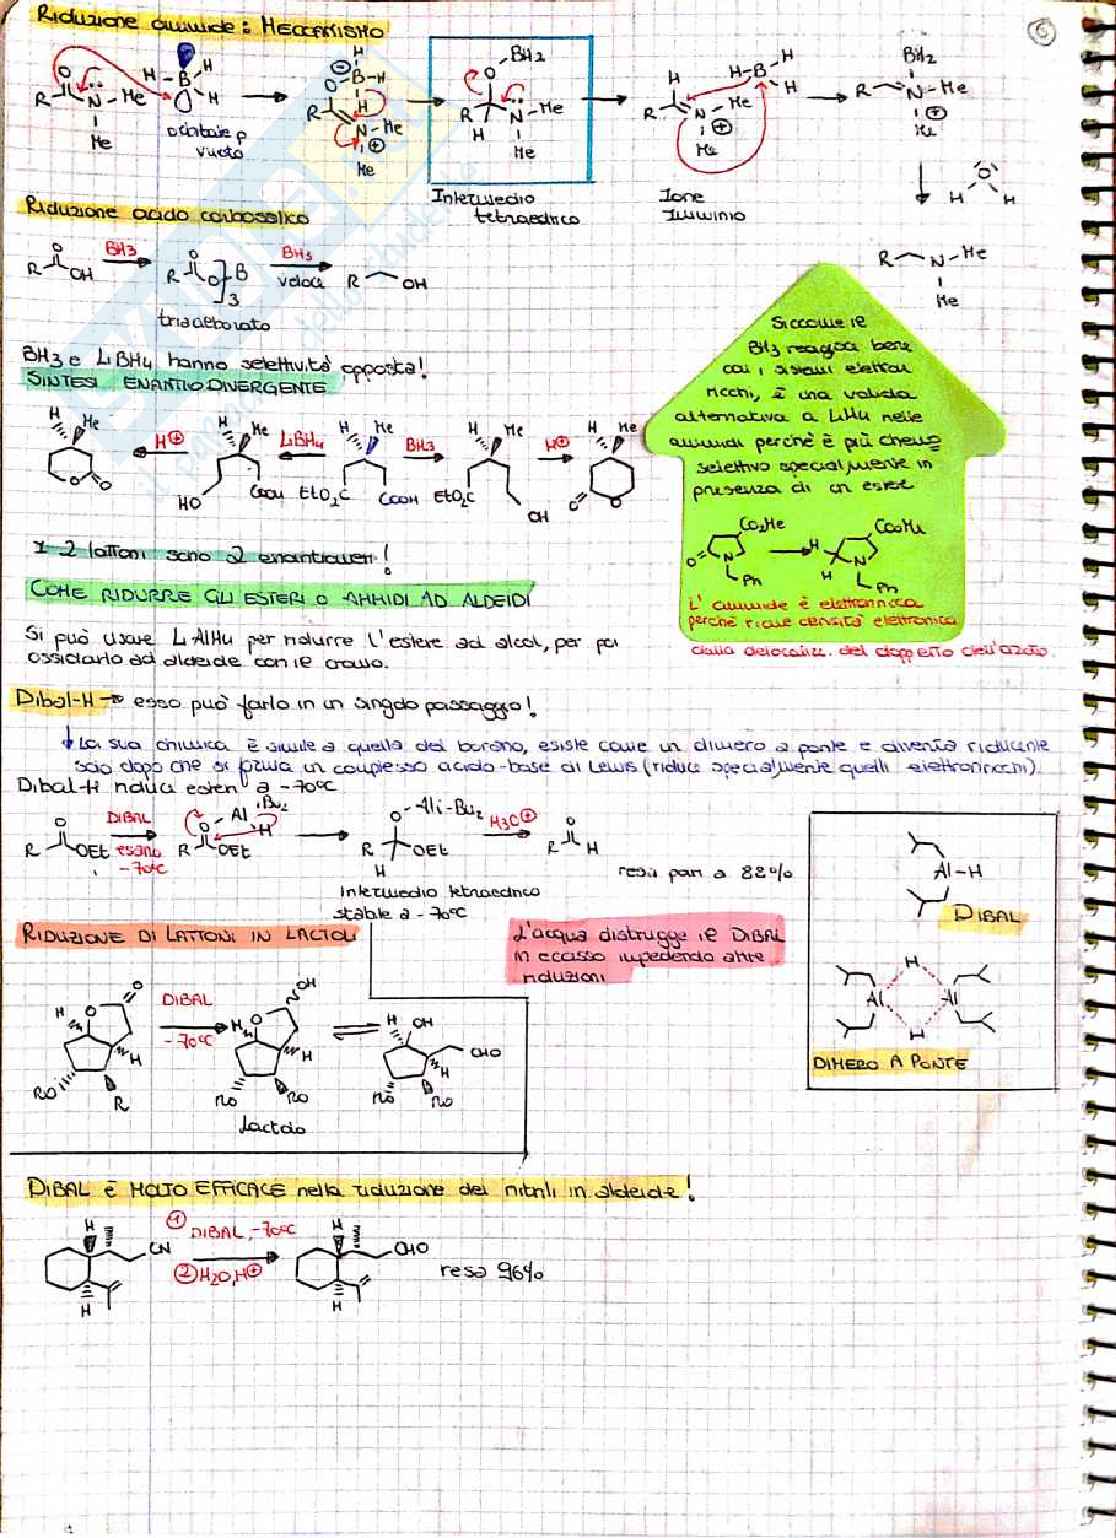 Riduzione ammide: MECCANISMO
6
O H-B-H H
R N-Me
Me
orbitale p
vuoto
H
O-B-H
H
R N-Me
Me
BH2
O
R N-Me
H Me
Intermedio
tetraedrico
H
R N-Me
Me
H-B-H
H
Ione
Imminio
BH2
R N-Me
Me
H O H
R N-Me
Me
Riduzione acido carbossilico
O
R OH
BH3
O
R O B
3
BH3
veloce
R OH
triacilborato
BH3 e LiBH4 hanno selettività opposta!
SINTESI ENANTIODIVERGENTE
H Me
O O
H⊕
H Me
HO COOH
LiBH4
H Me
EtO2C COOH
BH3
H Me
EtO2C OH
H⊕
H Me
O O
I 2 lattoni sono 2 enantiomeri!
Siccome il
BH3 reagisce bene
coi sistemi elettron
ricchi, è una valida
alternativa a LiAlH4 nelle
ammidi perchè è più chemo
selettivo specialmente in
presenza di un estere
CO2Me
O N
Ph
COOMe
H N
H Ph
L'ammide è elettronricca
perchè riceve densità elettronica
dalla delocalizz. del doppietto dell'azoto.
COME RIDURRE GLI ESTERI O AMMIDI AD ALDEIDI
Si può usare LiAlH4 per ridurre l'estere ad alcol, per poi
ossidarlo ad aldeide con il cromo.
Dibal-H → esso può farlo in un singolo passaggio!
↓ La sua chimica è simile a quella del borano, esiste come un dimero a ponte e diventa riducente
solo dopo che si forma un complesso acido-base di Lewis (riduce specialmente quelli elettronricchi)
Dibal-H riduce esteri a -70°C
O
R OEt
DIBAL
esano
-70°C
O Al iBu2
H
R OEt
O-Ali-Bu2
R OEt
H
H3O⊕
O
R H
resa pari a 88%
Intermedio tetraedrico
stabile a -70°C
Al-H
DIBAL
H
Al Al
H
DIMERO A PONTE
RIDUZIONE DI LATTONI IN LATTOLI
L'acqua distrugge il DIBAL
in eccesso impedendo altre
riduzioni
H O O
H
RO R
DIBAL
-70°C
OH
H O
H
RO RO
lattolo
H OH
CHO
H
RO RO
DIBAL è MOLTO EFFICACE nella riduzione dei nitrili in aldeide!
H
CN
H
1 DIBAL, -70°C
2 H2O, H⊕
H
CHO
H
resa 96%